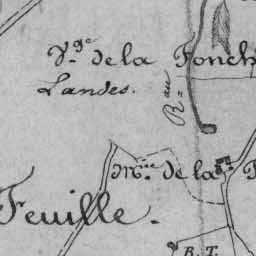 V.ge de la Fonch
Landes.
R.au
M.rie de la
Feuille.
B. T.